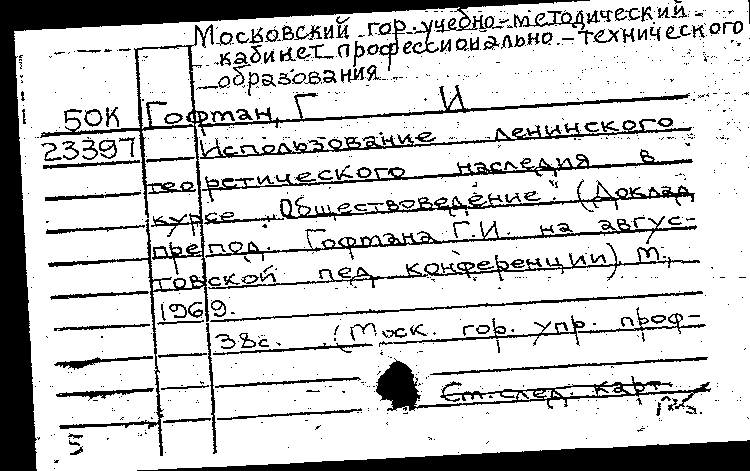 Московский гор. учебно-методический
кабинет профессионально-технического
образования
50К Гофтан, Г И
23397 Использование ленинского
теоретического наследия в
курсе „Обществоведение". (Доклад
препод. Гофтана Г.И. на авгус-
товской пед. конференции). М.,
1969.
38с. (Моск. гор. упр. проф-
См. след. карт.
5